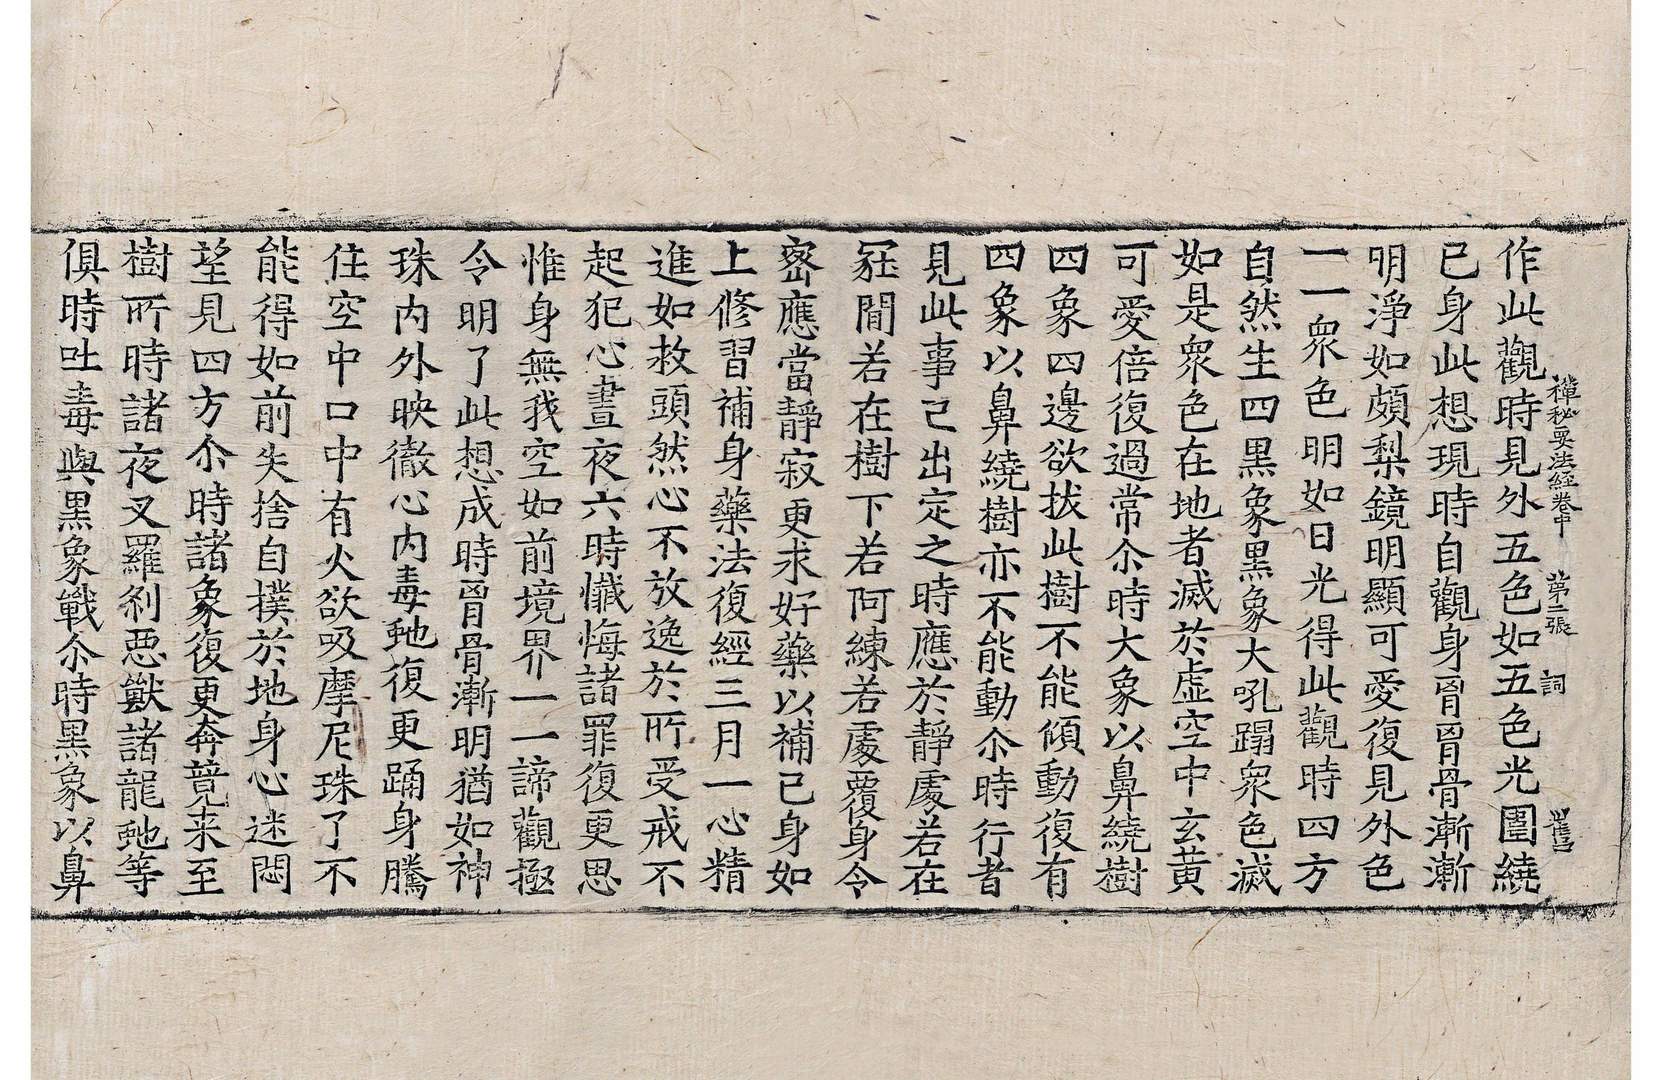 禪秘要法經卷中　第二張　詞
作此觀時見外五色如五色光圍繞
已身此想現時自觀身胷胷骨漸漸
明淨如頗梨鏡明顯可愛復見外色
一一衆色明如日光得此觀時四方
自然生四黑象黑象大吼蹋衆色滅
如是衆色在地者滅於虛空中玄黃
可愛倍復過常尒時大象以鼻繞樹
四象四邊欲拔此樹不能傾動復有
四象以鼻繞樹亦不能動尒時行者
見此事已出定之時應於靜處若在
冢間若在樹下若阿練若處覆身令
密應當靜寂更求好藥以補已身如
上修習補身藥法復經三月一心精
進如救頭然心不放逸於所受戒不
起犯心晝夜六時懺悔諸罪復更思
惟身無我空如前境界一一諦觀極
令明了此想成時胷骨漸明猶如神
珠內外映徹心內毒虵復更踊身騰
住空中口中有火欲吸摩尼珠了不
能得如前失捨自撲於地身心迷悶
望見四方尒時諸象復更奔競来至
樹所時諸夜叉羅刹惡獸諸龍虵等
俱時吐毒與黑象戰尒時黑象以鼻